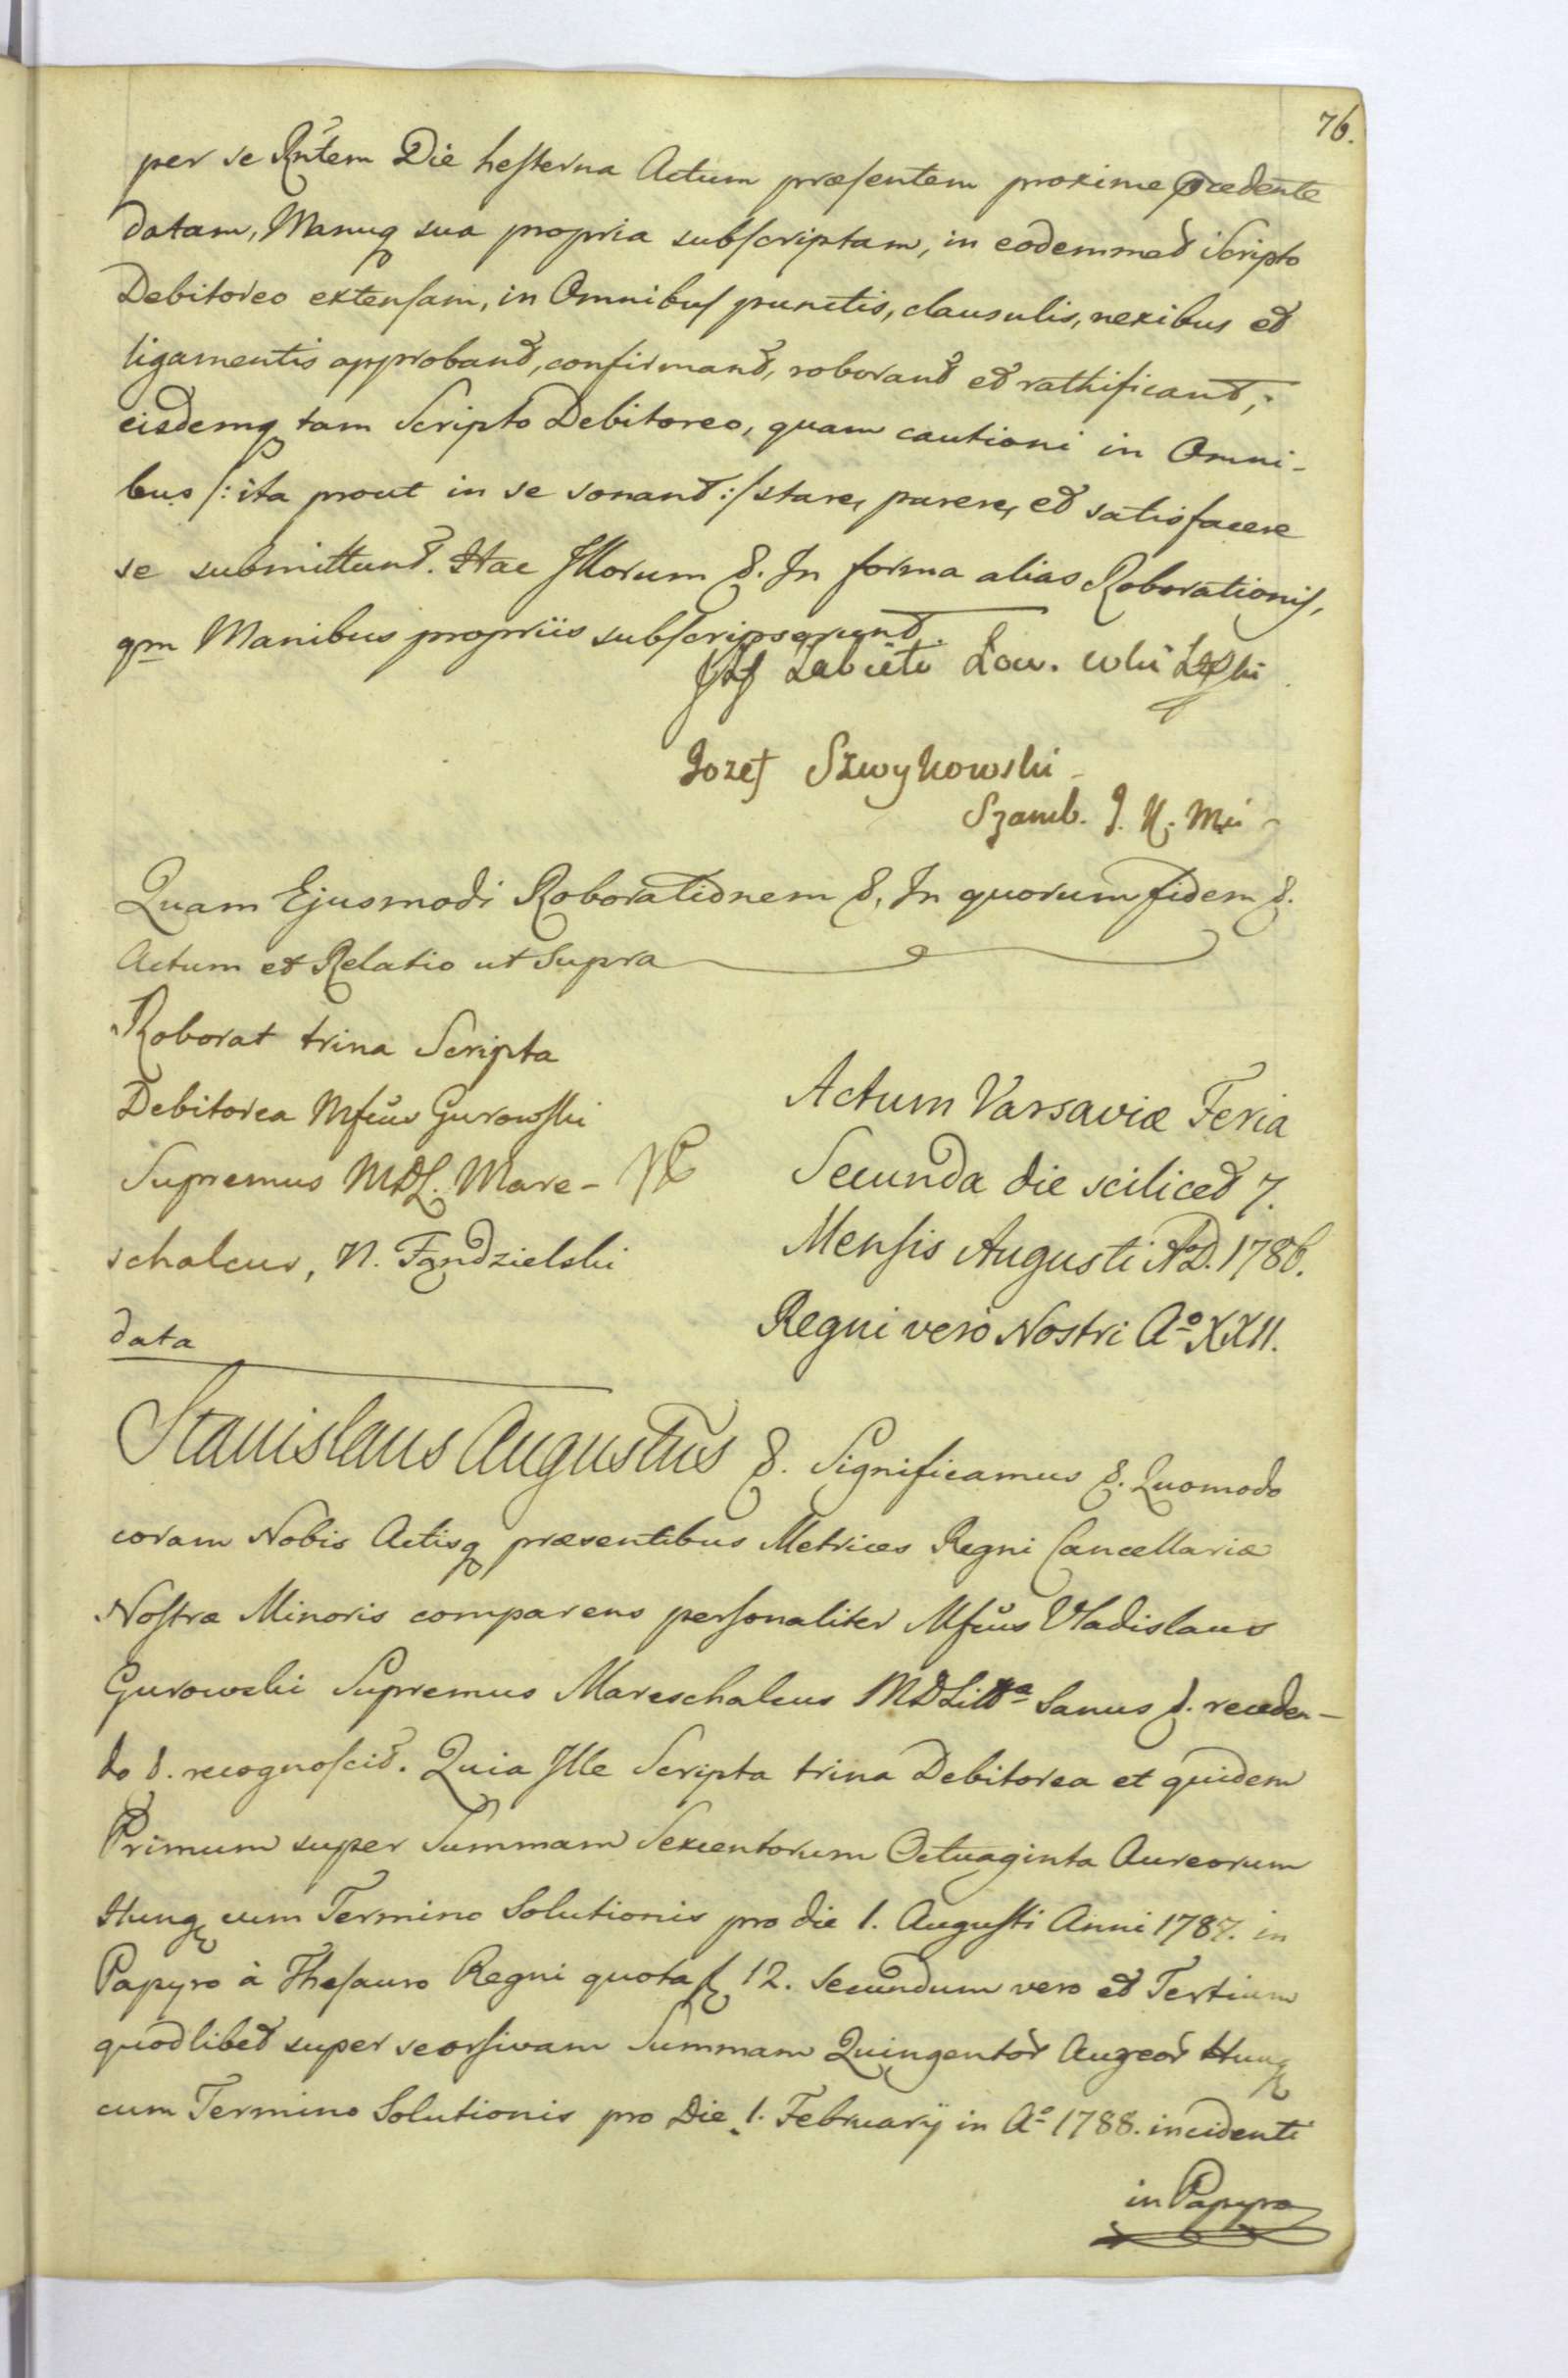 76.
per se Rñtem Die hesterna Actum præsentem proxime præcedente
datam, Manuq sua propria subscriptam, in eodemmet Scripto
Debitoreo extensam, in Omnibus punctis, clausulis, nexibus et
ligamentis approbant, confirmant, roborant et rathificant,
eisdemq tam Scripto Debitoreo, quam cautioni in Omni-
bus /: ita prout in se sonant :/ stare, parere, et satisfacere
se submittunt. Hac Illorum &. In forma alias Roborationis,
qm Manibus propriis subscripserunt.
Jozef Szwykowski
Szamb. J. K. Mci
Quam Ejusmodi Roborationem &. In quorum fidem &.
Actum et Relatio ut Supra
Roborat trina Scripta
Debitorea Mfcus Gurowski
Supremus MDL. Mare-
schalcus, N. Fądzielski
data
Actum Varsaviæ Feria
Secunda die scilicet 7.
Mensis Augusti AD. 1786.
Regni vero Nostri Aº XXII.
Stanislaus Augustus &. Significamus &. Quomodo
coram Nobis Actisq præsentibus Metrices Regni Cancellariæ
Nostræ Minoris comparens personaliter Mfcus Vladislaus
Gurowski Supremus Mareschalcus MDLittª Sanus &. receden-
do &. recognoscit. Quia Ille Scripta trina Debitorea et quidem
Primum super Summam Sexcentorum Octuaginta Aureorum
Hung cum Termino Solutionis pro die 1. Augusti Anni 1787. in
Papyro à Thesauro Regni quota f 12. Secundum vero et Tertium
quodlibet super seorsivam Summam Quingentor Aureor Hung
cum Termino Solutionis pro Die 1. Februarÿ in Aº 1788. incidenti
in Papyro